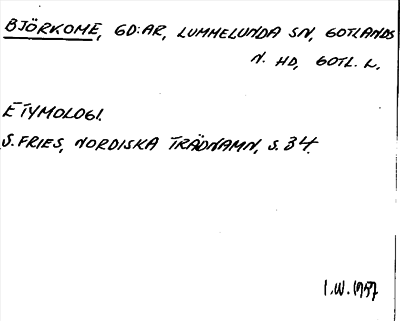 BJÖRKOME, GD:AR, LUMMELUNDA SN, GOTLANDS
N. HD, GOTL. L.
ETYMOLOGI.
S. FRIES, NORDISKA TRÄDNAMN, S. 34.
I.W. 1957